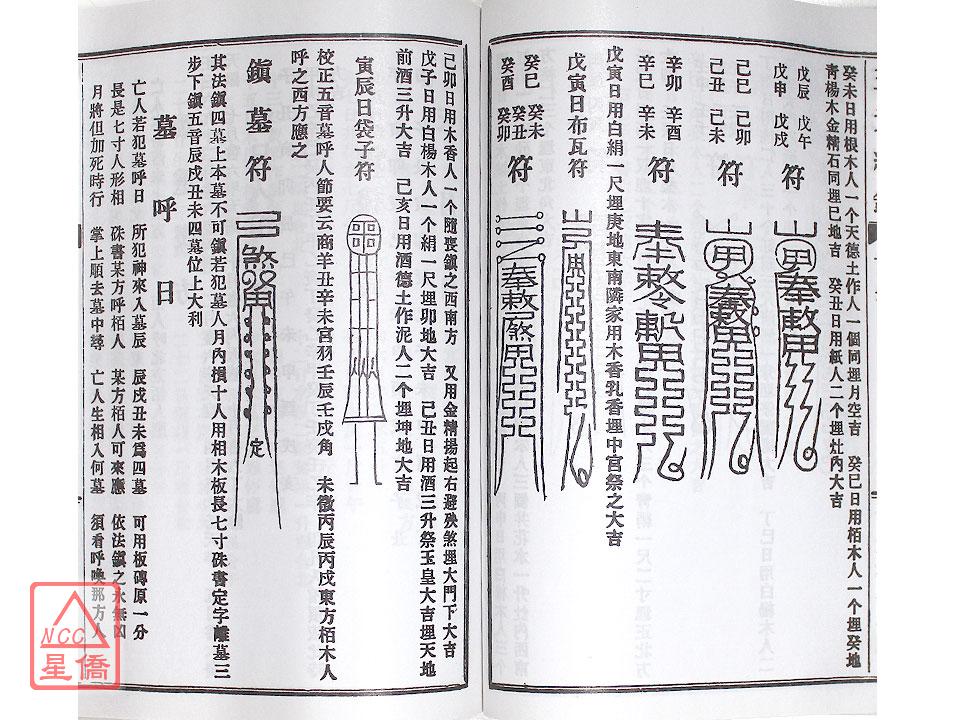 癸未日用根木人一个天德土作人一個同埋月空吉　癸巳日用栢木人一个埋癸地
青楊木金精石同埋巳地吉　癸丑日用紙人二个埋灶內大吉
戊辰　戊午
戊申　戊戌
符
己巳　己卯
己丑　己未
符
辛卯　辛酉
辛巳　辛未
符
戊寅日用白絹一尺埋庚地東南隣家用木香乳香埋中宮祭之大吉
戊寅日布瓦符
癸巳　癸未
癸酉　癸丑　癸卯
符
己卯日用木香人一个隨喪鎮之西南方　又用金精揚起右避殃煞埋大門下大吉
戊子日用白楊木人一个絹一尺埋卯地大吉　己丑日用酒三升祭玉皇大吉埋天地
前酒三升大吉　己亥日用酒德土作泥人二个埋坤地大吉
寅辰日袋子符
校正五音墓呼人節要云商羊丑辛未宮羽壬辰壬戌角　未徵丙辰丙戌東方栢木人
呼之西方應之
鎭墓符
定
其法鎭四墓上本墓不可鎭若犯墓人月內損十人用相木板長七寸硃書定字離墓三
步下鎭五音辰戌丑未四墓位上大利
墓呼日
亡人若犯墓呼日　所犯神來入墓辰　辰戌丑未爲四墓　可用板磚原一分
長是七寸人形相　硃書某方呼栢人　某方栢人可來應　依法鎭之永無凶
月將但加死時行　掌上順去墓中尋　亡人生相入何墓　須看呼喚那方人
NCC
星僑